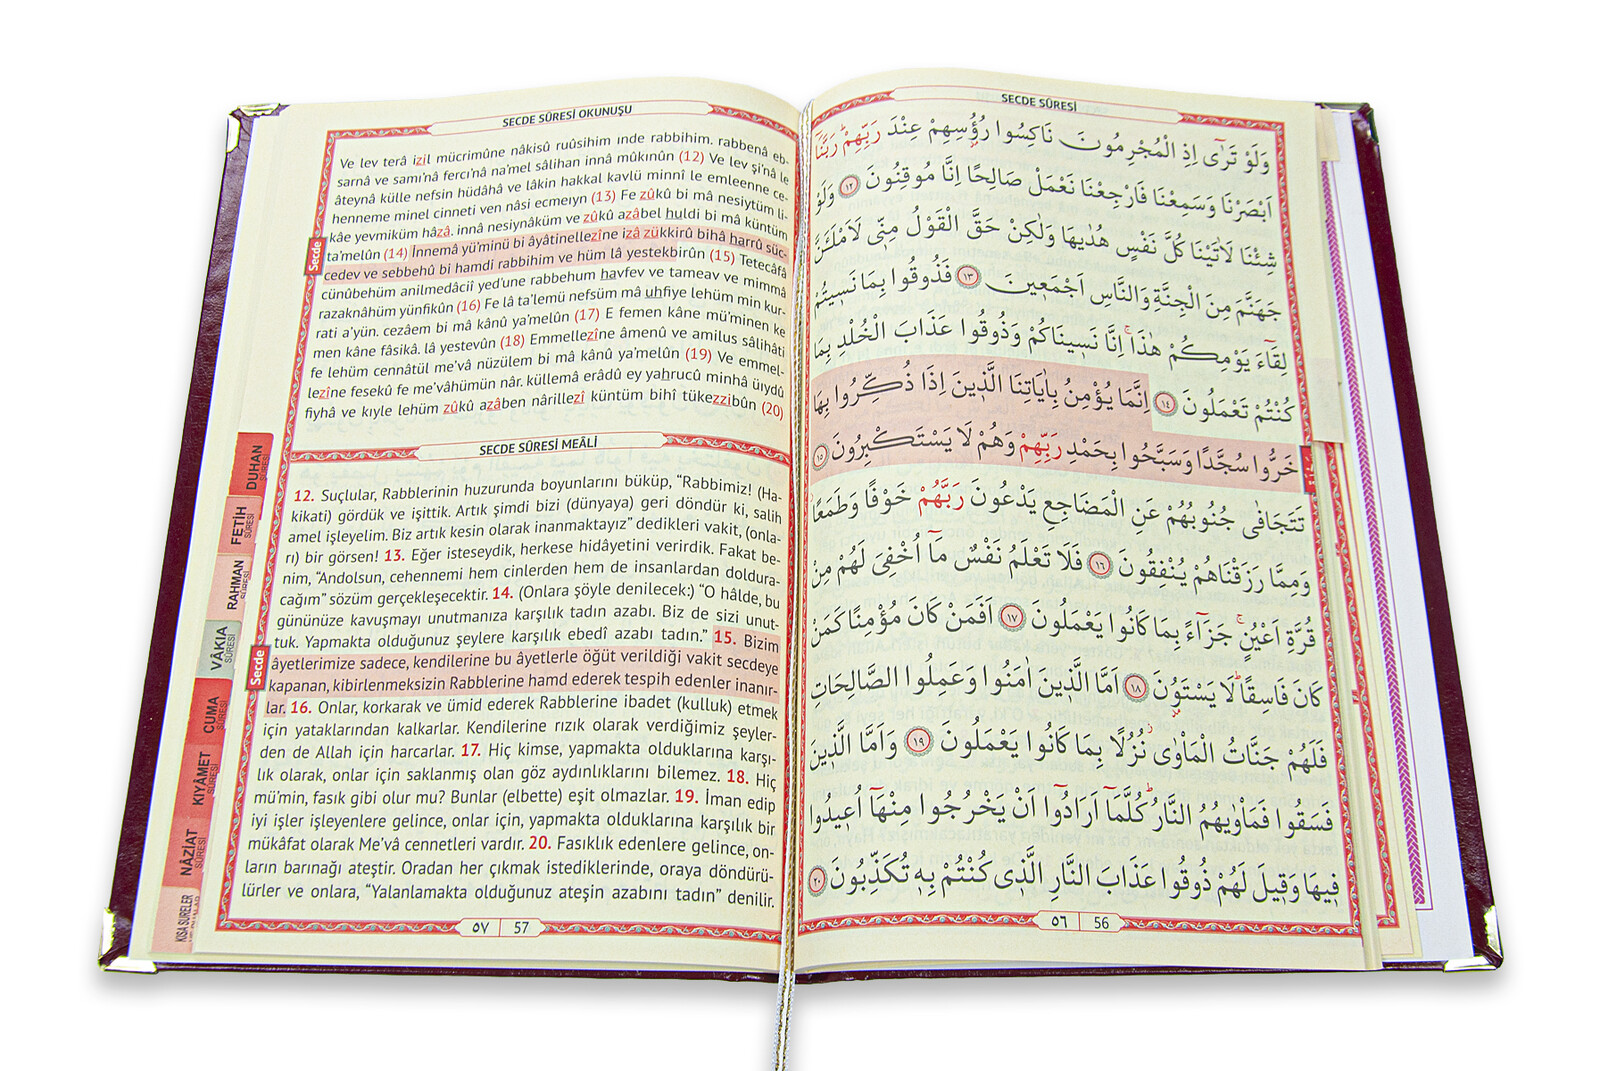 SECDE SÛRESİ
وَلَوْ تَرٰٓى اِذِ الْمُجْرِمُونَ نَاكِسُوا رُؤُ۫سِهِمْ عِنْدَ رَبِّهِمْۜ رَبَّنَٓا
اَبْصَرْنَا وَسَمِعْنَا فَارْجِعْنَا نَعْمَلْ صَالِحًا اِنَّا مُوقِنُونَ ﴿١٢﴾ وَلَوْ
شِئْنَا لَاٰتَيْنَا كُلَّ نَفْسٍ هُدٰيهَا وَلٰكِنْ حَقَّ الْقَوْلُ مِنّ۪ي لَاَمْلَـَٔنَّ
جَهَنَّمَ مِنَ الْجِنَّةِ وَالنَّاسِ اَجْمَع۪ينَ ﴿١٣﴾ فَذُوقُوا بِمَا نَس۪يتُمْ
لِقَٓاءَ يَوْمِكُمْ هٰذَاۚ اِنَّا نَس۪ينَاكُمْ وَذُوقُوا عَذَابَ الْخُلْدِ بِمَا
كُنْتُمْ تَعْمَلُونَ ﴿١٤﴾ اِنَّمَا يُؤْمِنُ بِاٰيَاتِنَا الَّذ۪ينَ اِذَا ذُكِّرُوا بِهَا
خَرُّوا سُجَّدًا وَسَبَّحُوا بِحَمْدِ رَبِّهِمْ وَهُمْ لَا يَسْتَكْبِرُونَ ﴿١٥﴾
تَتَجَافٰى جُنُوبُهُمْ عَنِ الْمَضَاجِعِ يَدْعُونَ رَبَّهُمْ خَوْفًا وَطَمَعًاۘ
وَمِمَّا رَزَقْنَاهُمْ يُنْفِقُونَ ﴿١٦﴾ فَلَا تَعْلَمُ نَفْسٌ مَٓا اُخْفِيَ لَهُمْ مِنْ
قُرَّةِ اَعْيُنٍۚ جَزَٓاءً بِمَا كَانُوا يَعْمَلُونَ ﴿١٧﴾ اَفَمَنْ كَانَ مُؤْمِنًا كَمَنْ
كَانَ فَاسِقًاۜ لَا يَسْتَوُ۫نَ ﴿١٨﴾ اَمَّا الَّذ۪ينَ اٰمَنُوا وَعَمِلُوا الصَّالِحَاتِ
فَلَهُمْ جَنَّاتُ الْمَأْوٰىۘ نُزُلًا بِمَا كَانُوا يَعْمَلُونَ ﴿١٩﴾ وَاَمَّا الَّذ۪ينَ
فَسَقُوا فَمَأْوٰيهُمُ النَّارُۜ كُلَّمَٓا اَرَادُٓوا اَنْ يَخْرُجُوا مِنْهَٓا اُع۪يدُوا
ف۪يهَا وَق۪يلَ لَهُمْ ذُوقُوا عَذَابَ النَّارِ الَّذ۪ي كُنْتُمْ بِه۪ تُكَذِّبُونَ ﴿٢٠﴾
٥٦ 56
SECDE SÛRESİ OKUNUŞU
Ve lev terâ izil mücrimûne nâkisû ruûsihim ınde rabbihim. rabbenâ eb-
sarnâ ve samı'nâ ferci'nâ na'mel sâlihan innâ mûkınûn (12) Ve lev şi'nâ le
âteynâ külle nefsin hüdâhâ ve lâkin hakkal kavlü minnî le emleenne ce-
henneme minel cinneti ven nâsi ecmeıyn (13) Fe zûkû bi mâ nesiytüm li-
kâe yevmiküm hâzâ. innâ nesiynâküm ve zûkû azâbel huldi bi mâ küntüm
ta'melûn (14) İnnemâ yü'minü bi âyâtinellezîne izâ zükkirû bihâ harrû süc-
cedev ve sebbehû bi hamdi rabbihim ve hüm lâ yestekbirûn (15) Tetecâfâ
cünûbehüm anilmedâciı yed'une rabbehum havfev ve tameav ve mimmâ
razaknâhüm yünfikûn (16) Fe lâ ta'lemü nefsüm mâ uhfiye lehüm min kur-
rati a'yün. cezâem bi mâ kânû ya'melûn (17) E femen kâne mü'minen ke
men kâne fâsikâ. lâ yestevûn (18) Emmellezîne âmenû ve amilus sâlihâti
fe lehüm cennâtül me'vâ nüzülem bi mâ kânû ya'melûn (19) Ve emmel-
lezîne fesekû fe me'vâhümün nâr. küllemâ erâdû ey yahrucû minhâ üıydû
fiyhâ ve kıyle lehüm zûkû azâben nârillezî küntüm bihî tükezzibûn (20)
Secde
SECDE SÛRESİ MEÂLİ
12. Suçlular, Rabblerinin huzurunda boyunlarını büküp, “Rabbimiz! (Ha-
kikati) gördük ve işittik. Artık şimdi bizi (dünyaya) geri döndür ki, salih
amel işleyelim. Biz artık kesin olarak inanmaktayız” dedikleri vakit, (onla-
rı) bir görsen! 13. Eğer isteseydik, herkese hidâyetini verirdik. Fakat be-
nim, “Andolsun, cehennemi hem cinlerden hem de insanlardan doldura-
cağım” sözüm gerçekleşecektir. 14. (Onlara şöyle denilecek:) “O hâlde, bu
gününüze kavuşmayı unutmanıza karşılık tadın azabı. Biz de sizi unut-
tuk. Yapmakta olduğunuz şeylere karşılık ebedî azabı tadın.” 15. Bizim
âyetlerimize sadece, kendilerine bu âyetlerle öğüt verildiği vakit secdeye
kapanan, kibirlenmeksizin Rabblerine hamd ederek tespih edenler inanır-
lar. 16. Onlar, korkarak ve ümid ederek Rabblerine ibadet (kulluk) etmek
için yataklarından kalkarlar. Kendilerine rızık olarak verdiğimiz şeyler-
den de Allah için harcarlar. 17. Hiç kimse, yapmakta olduklarına karşı-
lık olarak, onlar için saklanmış olan göz aydınlıklarını bilemez. 18. Hiç
mü'min, fasık gibi olur mu? Bunlar (elbette) eşit olmazlar. 19. İman edip
iyi işler işleyenlere gelince, onlar için, yapmakta olduklarına karşılık bir
mükâfat olarak Me'vâ cennetleri vardır. 20. Fasıklık edenlere gelince, on-
ların barınağı ateştir. Oradan her çıkmak istediklerinde, oraya döndürü-
lürler ve onlara, “Yalanlamakta olduğunuz ateşin azabını tadın” denilir.
Secde
٥٧ 57
DUHAN SÛRESİ
FETİH SÛRESİ
RAHMAN SÛRESİ
VÂKIA SÛRESİ
CUMA SÛRESİ
KIYÂMET SÛRESİ
NÂZİAT SÛRESİ
KISA SÛRELER